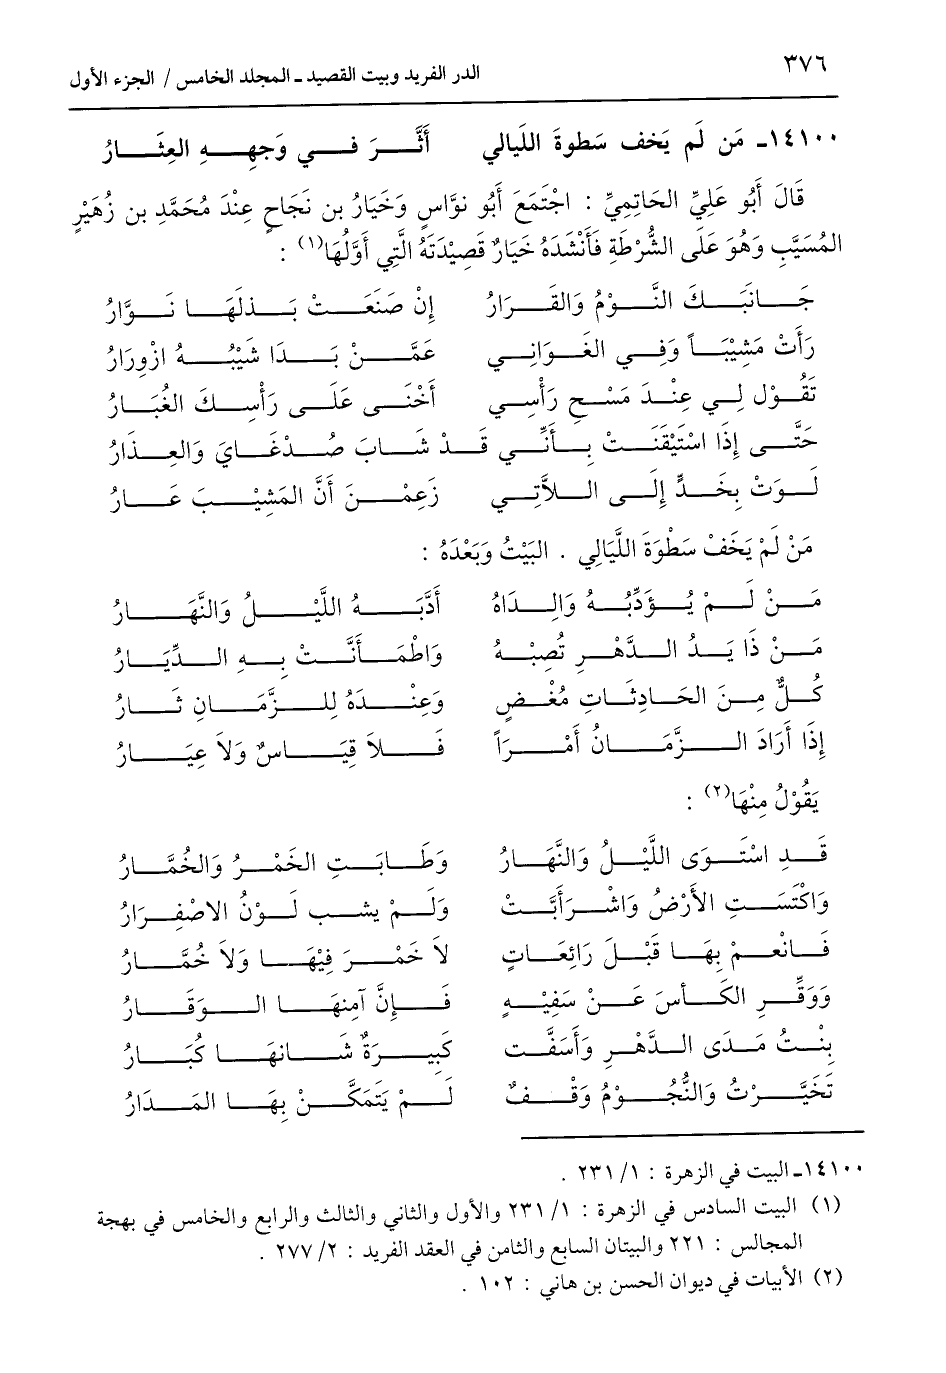 ٣٧٦ الدر الفريد وبيت القصيد ـ المجلد الخامس / الجزء الأول
١٤١٠٠ـ مَن لَم يَخف سَطوةَ اللَيالي أَثَّرَ فــي وَجهــهِ العِثَــارُ
قَالَ أَبُو عَلِيِّ الحَاتِمِيِّ : اجْتَمَعَ أَبُو نوَّاسٍ وَخَيَارُ بن نَجَاحٍ عِنْدَ مُحَمَّدِ بن زُهَيْرٍ
المُسَيَّبِ وَهُوَ عَلَى الشُّرْطَةِ فَأَنْشَدَهُ خَيَارٌ قَصِيْدَتَهُ الَّتِي أَوَّلُهَا(١) :
جَــانَبَــكَ النَّــوْمُ وَالقَــرَارُ إنْ صَنَعَــتْ بَــذلَهَــا نَــوَّارُ
رَأَتْ مَشِيْبَــاً وَفِــي الغَــوَانِــي عَمَّــنْ بَــدَا شَيْبُــهُ ازْوِرَارُ
تَقُــوْل لِــي عِنْــدَ مَسْــحِ رَأْسِــي أَخْنَــى عَلَــى رَأْسِــكَ الغُبَــارُ
حَتَّــى إِذَا اسْتَيْقَنَــتْ بِــأَنِّــي قَــدْ شَــابَ صُــدْغَــايَ وَالعِــذَارُ
لَــوَتْ بِخَــدٍّ إِلَــى الــلاَّتِــي زَعِمْــنَ أَنَّ المَشِيْــبَ عَــارُ
مَنْ لَمْ يَخَفْ سَطْوَةَ اللَّيَالِي . البَيْتُ وَبَعْدَهُ :
مَــنْ لَــمْ يُــؤَدِّبْــهُ وَالِــدَاهُ أَدَّبَــهُ اللَّيْــلُ وَالنَّهَــارُ
مَــنْ ذَا يَــدُ الــدَّهْــرِ تُصِبْــهُ وَاطْمَــأَنَّــتْ بِــهِ الــدِّيَــارُ
كُــلٌّ مِــنَ الحَــادِثَــاتِ مُغْــضٍ وَعِنْــدَهُ لِلــزَّمَــانِ ثَــارُ
إِذَا أَرَادَ الــزَّمَــانُ أَمْــرَاً فَــلاَ قِيَــاسٌ وَلاَ عِيَــارُ
يَقُوْلُ مِنْهَا(٢) :
قَــدِ اسْتَــوَى اللَّيْــلُ وَالنَّهَــارُ وَطَــابَــتِ الخَمْــرُ وَالخُمَّــارُ
وَاكْتَسَــتِ الأَرْضُ وَاشْــرَأَبَّــتْ وَلَــمْ يشــب لَــوْنُ الاصْفِــرَارُ
فَــانْعــمْ بِهَــا قَبْــلَ رَائِعَــاتٍ لاَ خَمْــرَ فِيْهَــا وَلاَ خُمَّــارُ
وَوَقِّــرِ الكَــأسَ عَــنْ سَفِيْــهٍ فَــإِنَّ آمِنهَــا الــوَقَــارُ
بِنْــتُ مَــدَى الــدَّهْــرِ وَأَسَفَّــت كَبِيــرَةٌ شَــانهَــا كُبَــارُ
تَخَيَّــرْتُ وَالنُّجُــوْمُ وَقْــفٌ لَــمْ يَتَمَكَّــنْ بِهَــا المَــدَارُ
١٤١٠٠ـ البيت في الزهرة : ١/ ٢٣١ .
(١) البيت السادس في الزهرة : ١/ ٢٣١ والأول والثاني والثالث والرابع والخامس في بهجة
المجالس : ٢٢١ والبيتان السابع والثامن في العقد الفريد : ٢/ ٢٧٧ .
(٢) الأبيات في ديوان الحسن بن هاني : ١٠٢ .